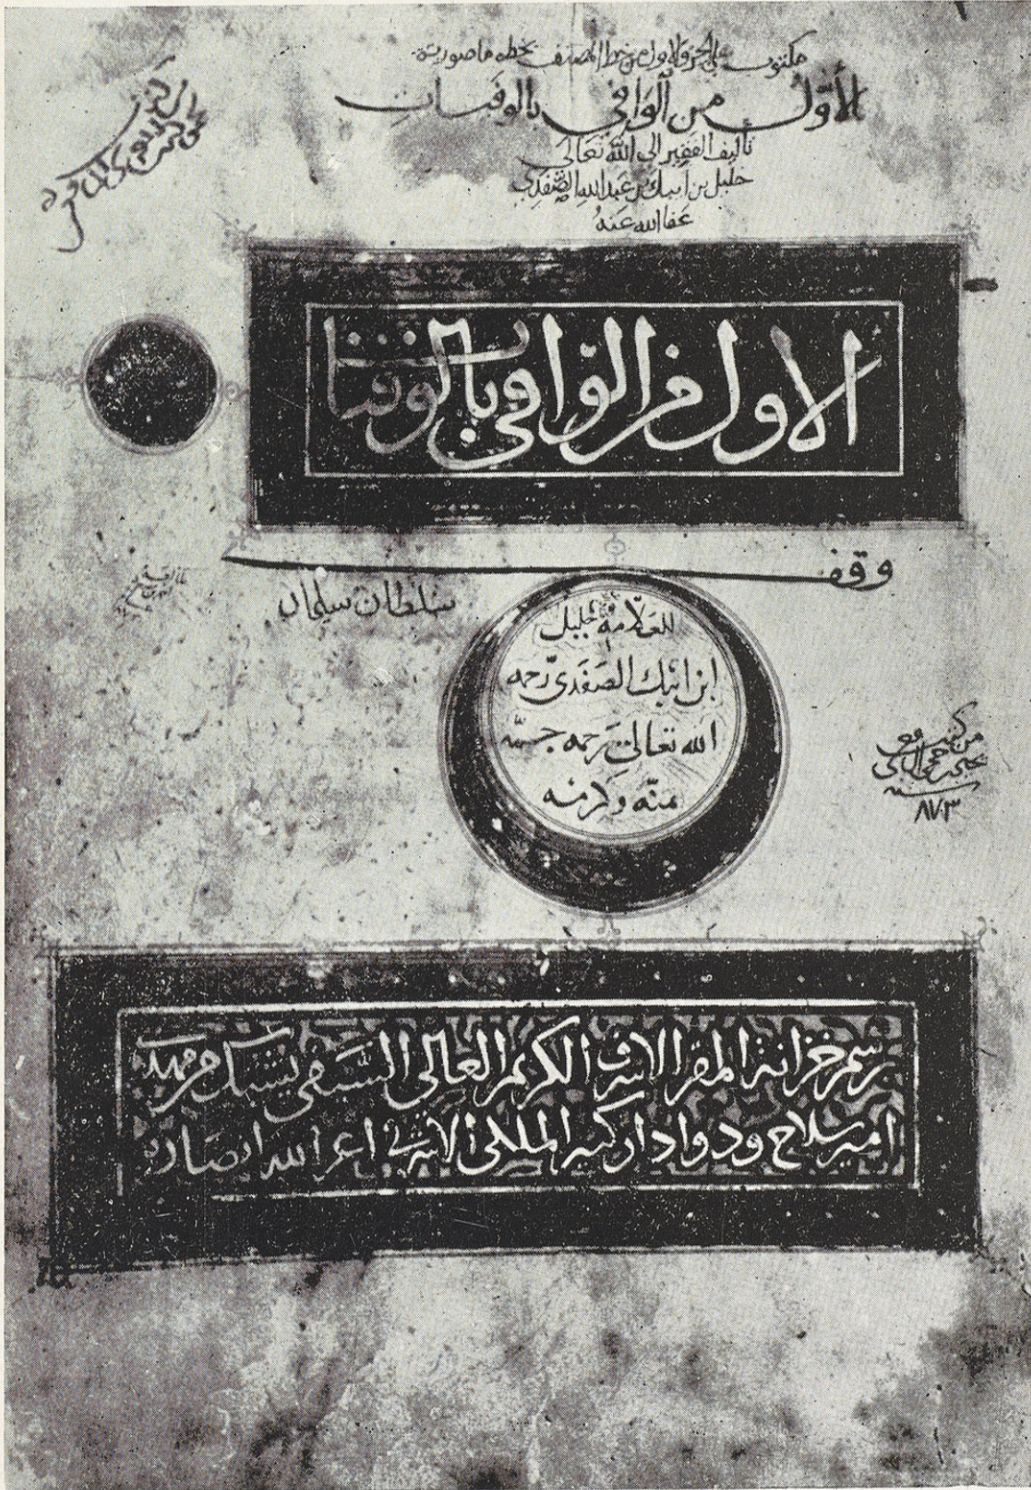 مكتوب على الجزو الاول من خط المصنف بخطه ما صورته
الأوّل من الوَافي بالوفيات
تأليف الفقير الى الله تعَالى
خليل بن اَيبك بن عبد الله الصَّفَدي
عَفا الله عَنهُ
الاول من الوّافي بالوفيات
وقف
سلطان سليمان
للعَلاّمة خليل
ابن ايبك الصَفَدىّ رحمه
الله تعالى برحمه
منّه وكرمه
من كتب
سنه
٨٧٠٣
برسم خزانة المقر الاشرف الكريم العَالي السَيفي يشبك من مهدى
امير سلاح ودوادار كبير الملكى الاشرفى اعز الله انصاره